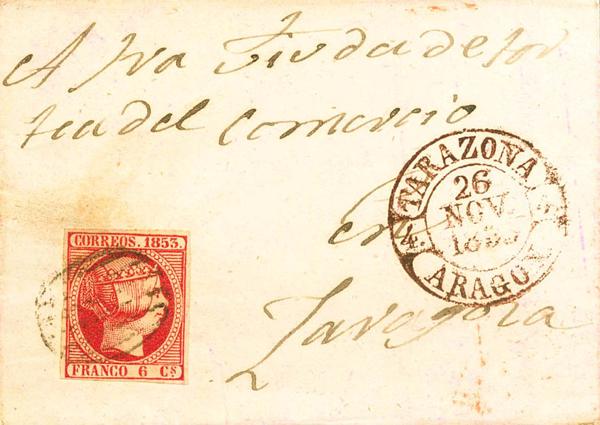 A Sra Viuda de for
tea del comercio
en
Zaragoza
TARAZONA
26
NOV.
ARAGON
CORREOS. 1853.
FRANCO 6 Cs